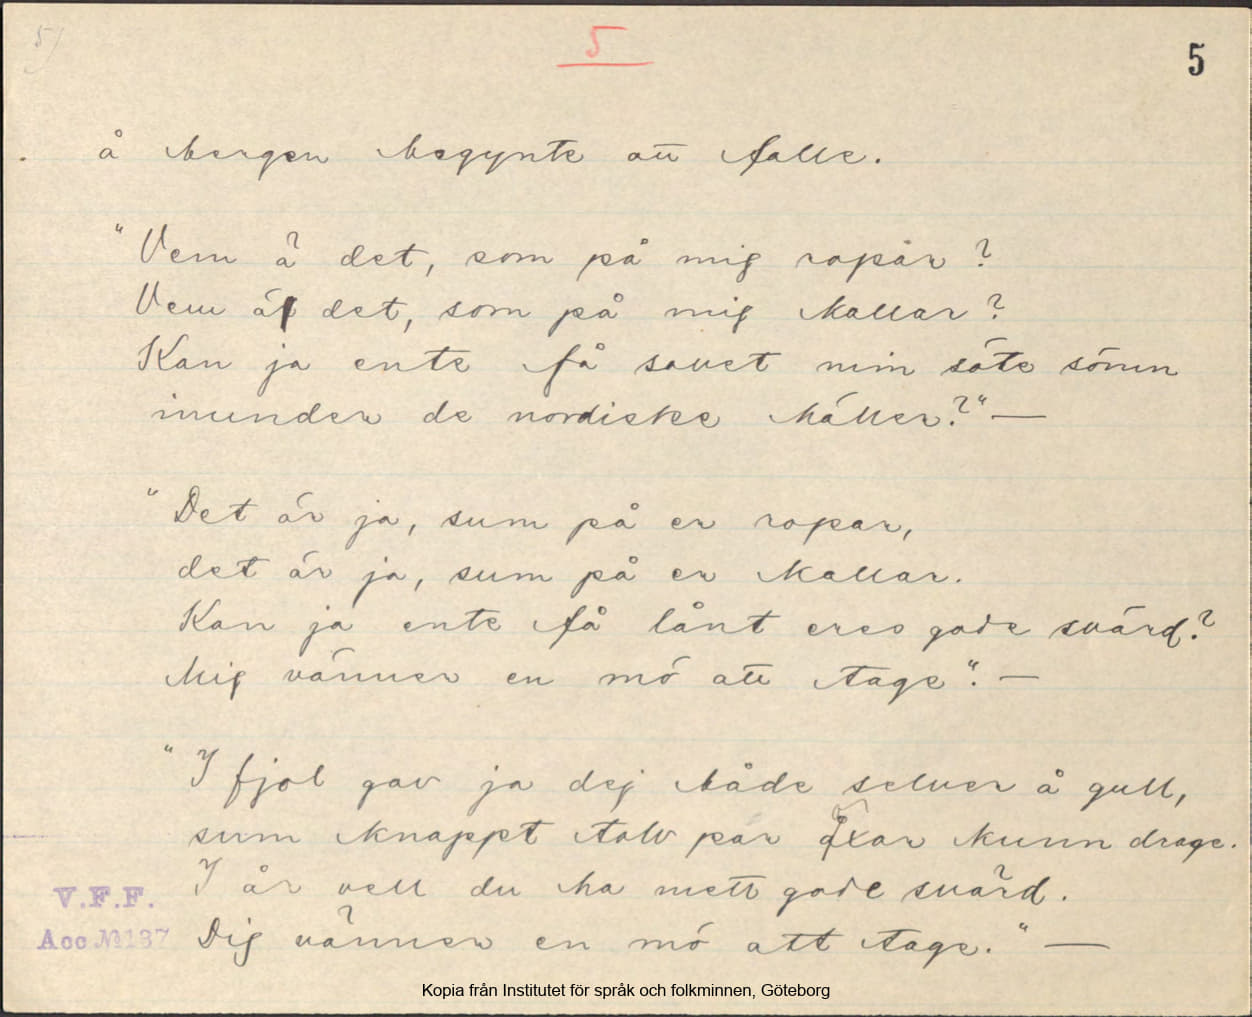 5)
5
5
å bergen begynte att falle.
"Vem ä det, som på mig ropar?
Vem ä det, som på mig kallar?
Kan ja ente få sovet min söte sömn
inunder de nordiske häller?" —
"Det är ja, sum på er ropar,
det är ja, sum på er kallar.
Kan ja ente få lånt eres gode svärd?
Mig vänner en mö att tage". —
"I fjol gav ja dej både selver å gull,
sum knappt tolv par öxar kunn drage.
I år vell du ha mett gode svärd.
Dig vänner en mö att tage." —
V.F.F.
Acc № 187
Kopia från Institutet för språk och folkminnen, Göteborg